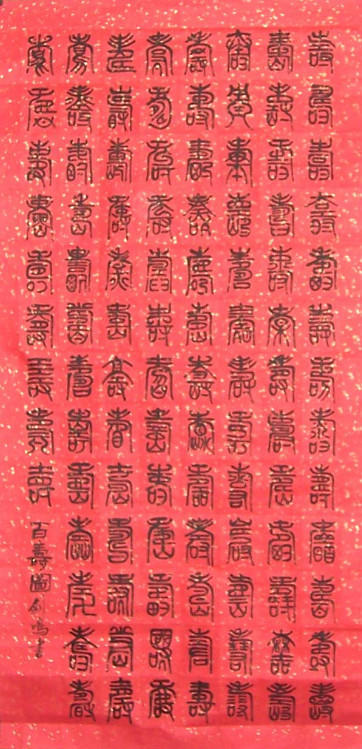 壽壽壽壽壽壽壽壽壽壽壽壽壽
壽壽壽壽壽壽壽壽壽壽壽壽壽
壽壽壽壽壽壽壽壽壽壽壽壽壽
壽壽壽壽壽壽壽壽壽壽壽壽壽
壽壽壽壽壽壽壽壽壽壽壽壽壽
壽壽壽壽壽壽壽壽壽壽壽壽壽
壽壽壽壽壽壽壽壽壽壽壽壽壽
壽壽壽壽壽壽壽壽壽
百壽圖